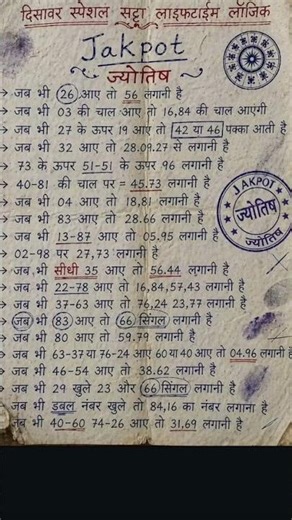 दिसावर स्पेशल सट्टा लाइफटाईम लॉजिक
Jakpot
ज्योतिष
→ जब भी 26 आए तो 56 लगानी है
→ जब भी 03 की चाल आए तो 16,84 की चाल आएगी
→ जब भी 27 के ऊपर 19 आए तो 42 या 46 पक्का आती है
→ जब भी 32 आए तो 28.09.27 से लगानी है
→ 73 के ऊपर 51-51 के ऊपर 96 लगानी है
→ 40-81 की चाल पर = 45.73 लगानी है
→ जब भी 04 आए तो 18,81 लगानी है
→ जब भी 83 आए तो 28.66 लगानी है
→ जब भी 13-87 आए तो 05.95 लगानी है
→ 02-98 पर 27,73 लगानी है
→ जब भी सीधी 35 आए तो 56.44 लगानी है
→ जब भी 22-78 आए तो 16,84,57,43 लगानी है
→ जब भी 37-63 आए तो 76,24 23,77 लगानी है
→ जब भी 83 आए तो 66 सिंगल लगानी है
→ जब भी 80 आए तो 59.79 लगानी है
→ जब भी 63-37 या 76-24 आए 60 या 40 आए तो 04.96 लगानी है
→ जब भी 46-54 आए तो 38.62 लगानी है
→ जब भी 29 खुले 23 और 66 सिंगल लगानी है
जब भी डबल नंबर खुले तो 84,16 का नंबर लगाना है
जब भी 40-60 74-26 आए तो 31,69 लगानी है
JAKPOT
ज्योतिष
ज्योतिष